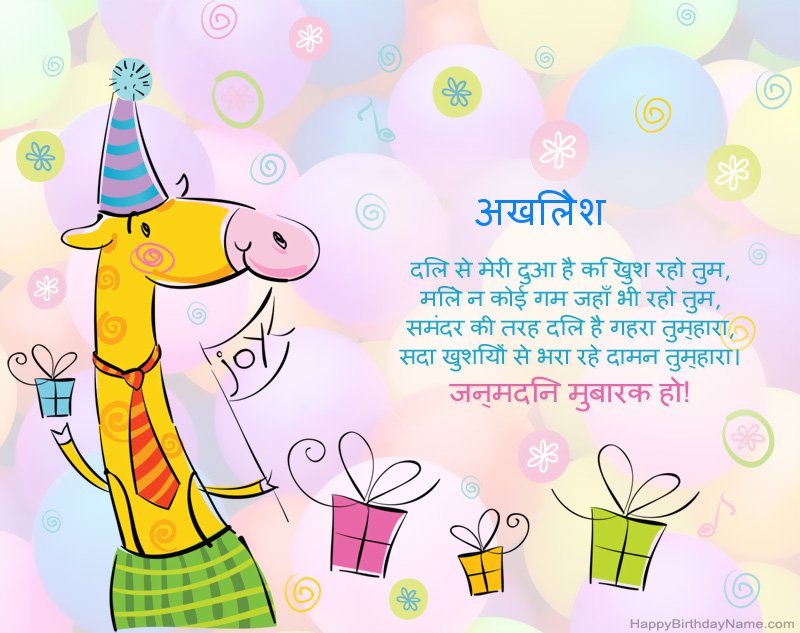 अखिलेश
joy
दिल से मेरी दुआ है कि खुश रहो तुम,
मिले न कोई गम जहाँ भी रहो तुम,
समंदर की तरह दिल है गहरा तुम्हारा,
सदा खुशियों से भरा रहे दामन तुम्हारा।
जन्मदिन मुबारक हो!
HappyBirthdayName.com